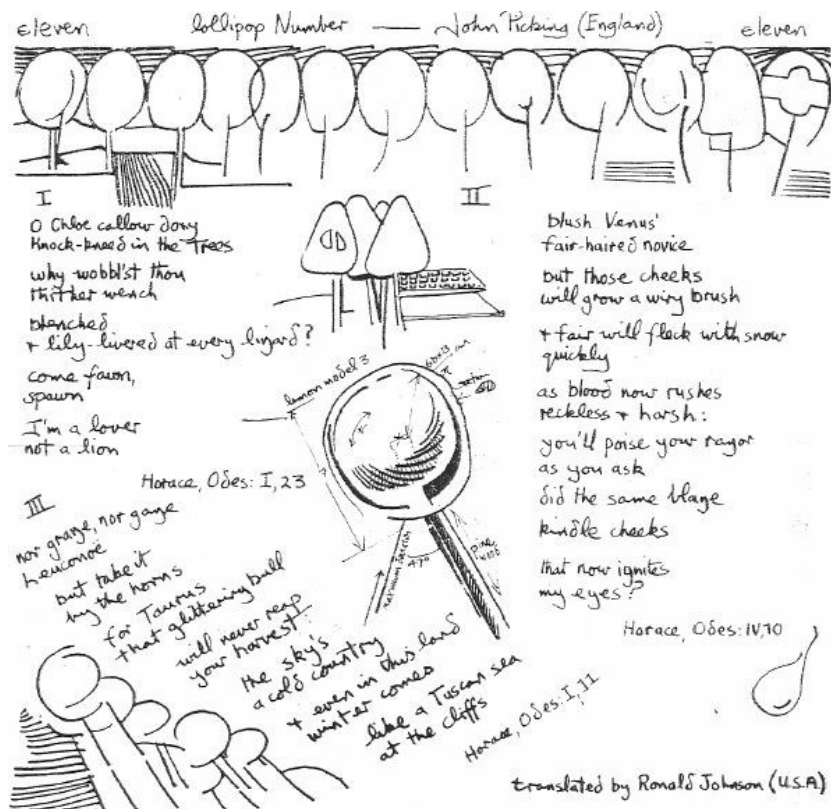 eleven lollipop Number — John Picking (England) eleven
I
O Chloe callow doxy
knock-kneed in the Trees
why wobbl'st thou
thither wench
blenched
+ lily-livered at every lizard?
come fawn,
spawn
I'm a lover
not a lion
Horace, Odes: I, 23
II
blush Venus'
fair-haired novice
but those cheeks
will grow a wiry brush
+ fair will fleck with snow
quickly
as blood now rushes
reckless + harsh:
you'll poise your razor
as you ask
did the same blaze
kindle cheeks
that now ignites
my eyes?
Horace, Odes: IV, 10
lemon model 3
III
nor graze, nor gaze
Leuconoë
but take it
by the horns
for Taurus
that glittering bull
will never reap
your harvest:
the sky's
a cold country
+ even in this land
winter comes
like a Tuscan sea
at the cliffs
Horace, Odes: I, 11
translated by Ronald Johnson (U.S.A)